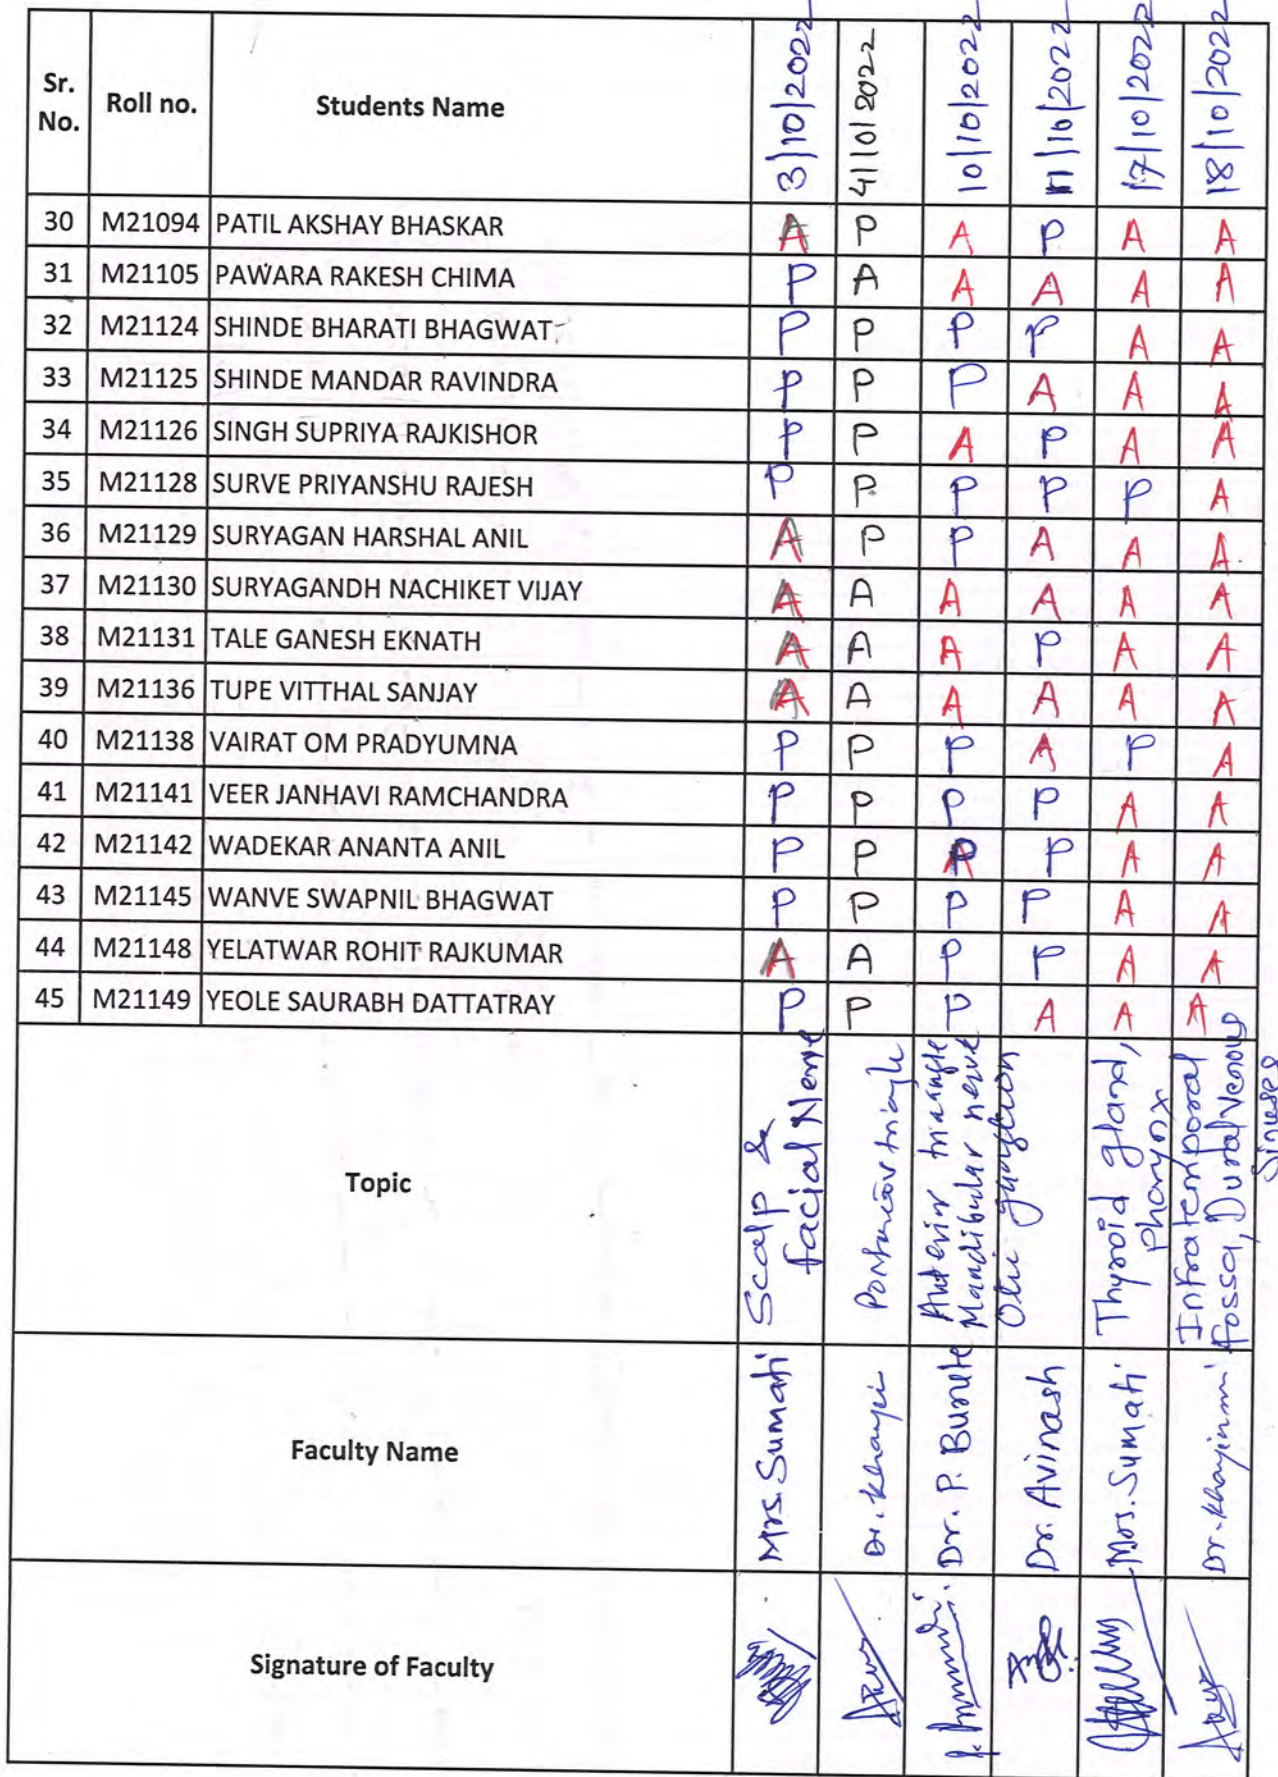 Sr. No. Roll no. Students Name 3/10/2022 4/10/2022 10/10/2022 11/10/2022 17/10/2022 18/10/2022
30 M21094 PATIL AKSHAY BHASKAR A P A P A A
31 M21105 PAWARA RAKESH CHIMA P A A A A A
32 M21124 SHINDE BHARATI BHAGWAT P P P P A A
33 M21125 SHINDE MANDAR RAVINDRA P P P A A A
34 M21126 SINGH SUPRIYA RAJKISHOR P P A P A A
35 M21128 SURVE PRIYANSHU RAJESH P P P P P A
36 M21129 SURYAGAN HARSHAL ANIL A P P A A A
37 M21130 SURYAGANDH NACHIKET VIJAY A A A A A A
38 M21131 TALE GANESH EKNATH A A A P A A
39 M21136 TUPE VITTHAL SANJAY A A A A A A
40 M21138 VAIRAT OM PRADYUMNA P P P A P A
41 M21141 VEER JANHAVI RAMCHANDRA P P P P A A
42 M21142 WADEKAR ANANTA ANIL P P P P A A
43 M21145 WANVE SWAPNIL BHAGWAT P P P P A A
44 M21148 YELATWAR ROHIT RAJKUMAR A A P P A A
45 M21149 YEOLE SAURABH DATTATRAY P P P A A A
Topic
Scalp &
facial Nerve
triangle
Anterior triangle
Mandibular nerve
Otic ganglion
Thyroid gland,
pharynx
Infratemporal
fossa, Dural Venous
Sinuses
Faculty Name
Mrs. Sumati
Dr.
Dr. P. Burute
Dr. Avinash
Mrs. Sumati
Dr. Khayinmi
Signature of Faculty